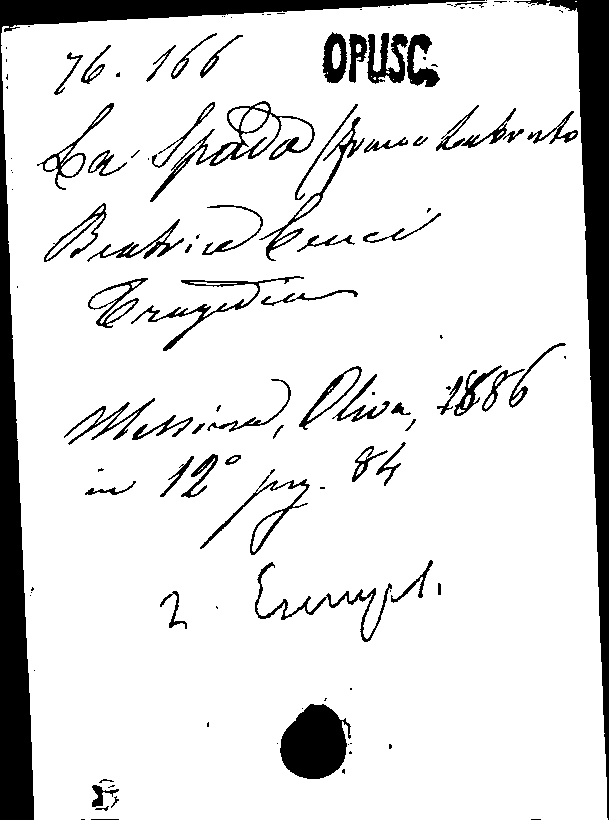 76. 166 OPUSC.
La Spada
Beatrice Cenci
Tragedia
Messina, Oliva, 1886
in 12° pag. 84
2. Esempl.